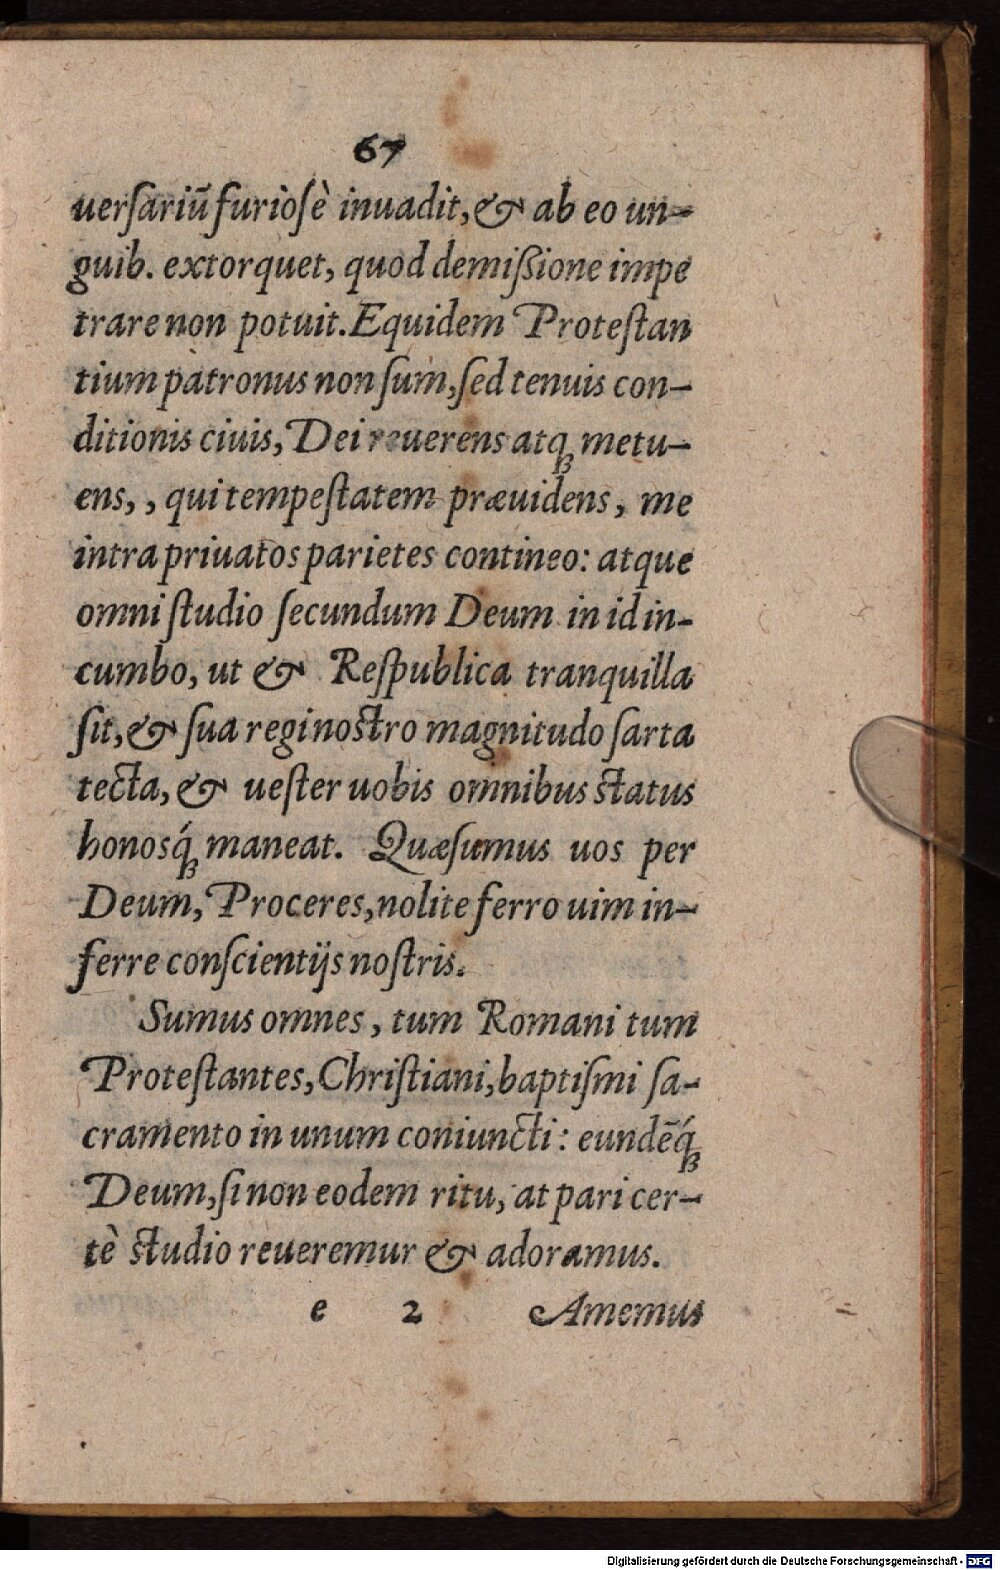 67
uerſariū furioſè inuadit, & ab eo un-
guib. extorquet, quod demiſsione impe
trare non potuit. Equidem Proteſtan
tium patronus non ſum, ſed tenuis con-
ditionis ciuis, Dei reuerens atq́ꝫ metu-
ens, , qui tempeſtatem præuidens, me
intra priuatos parietes contineo: atque
omni ſtudio ſecundum Deum in id in-
cumbo, ut & Reſpublica tranquilla
ſit, & ſua regi noſtro magnitudo ſarta
tecta, & ueſter uobis omnibus ſtatus
honosq́ꝫ maneat. Quæſumus uos per
Deum, Proceres, nolite ferro uim in-
ferre conſcientijs noſtris.
Sumus omnes, tum Romani tum
Proteſtantes, Chriſtiani, baptiſmi ſa-
cramento in unum coniuncti: eundēq́ꝫ
Deum, ſi non eodem ritu, at pari cer-
tè ſtudio reueremur & adoramus.
e 2 Amemus
Digitalisierung gefördert durch die Deutsche Forschungsgemeinschaft - DFG